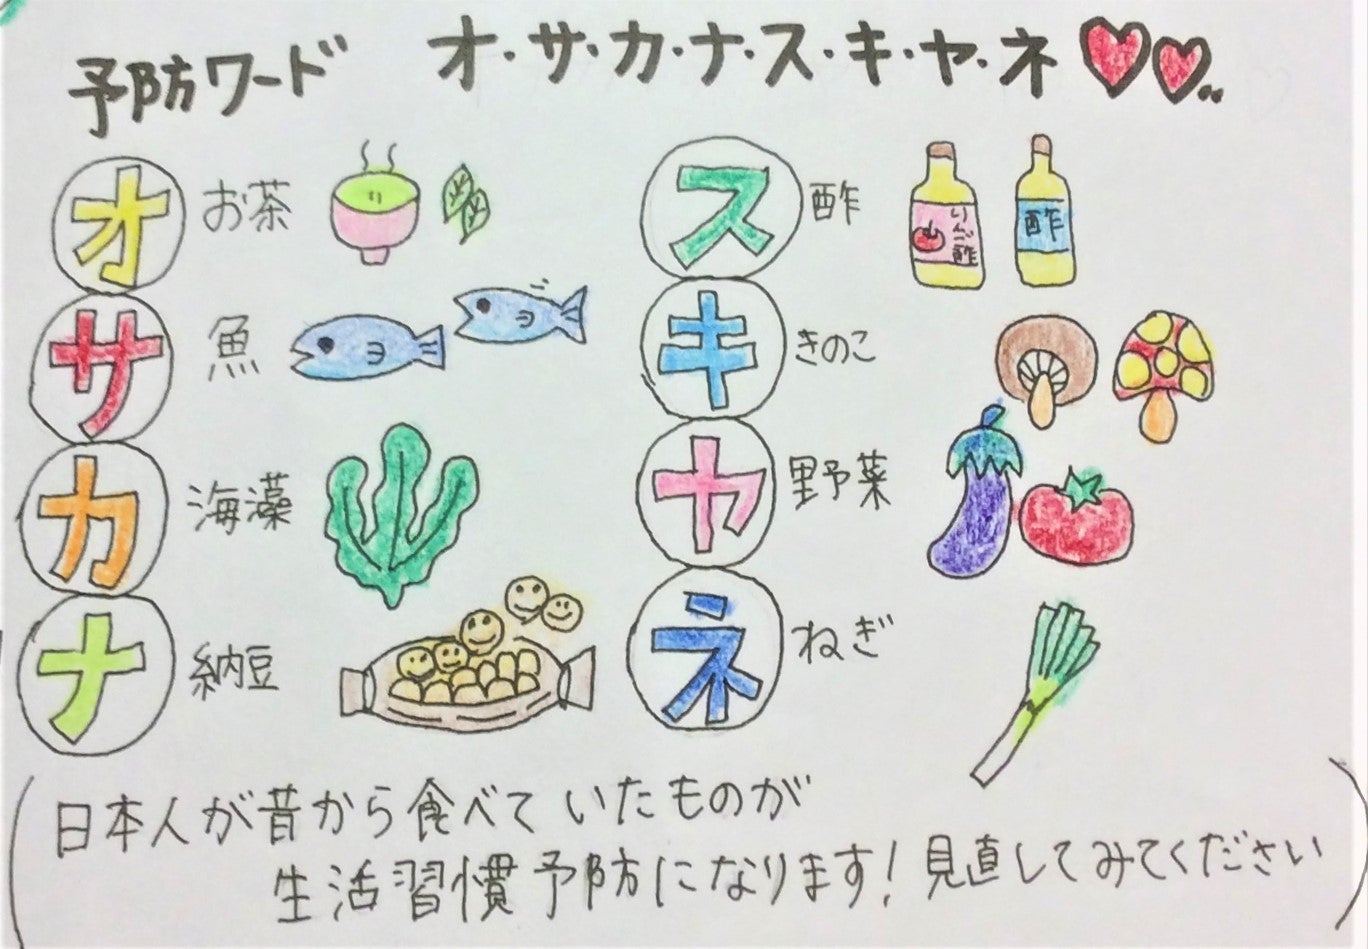 予防ワード オ・サ・カ・ナ・ス・キ・ヤ・ネ
オ お茶
サ 魚
カ 海藻
ナ 納豆
ス 酢
りんご酢
酢
キ きのこ
ヤ 野菜
ネ ねぎ
(日本人が昔から食べていたものが
生活習慣予防になります!見直してみてください)